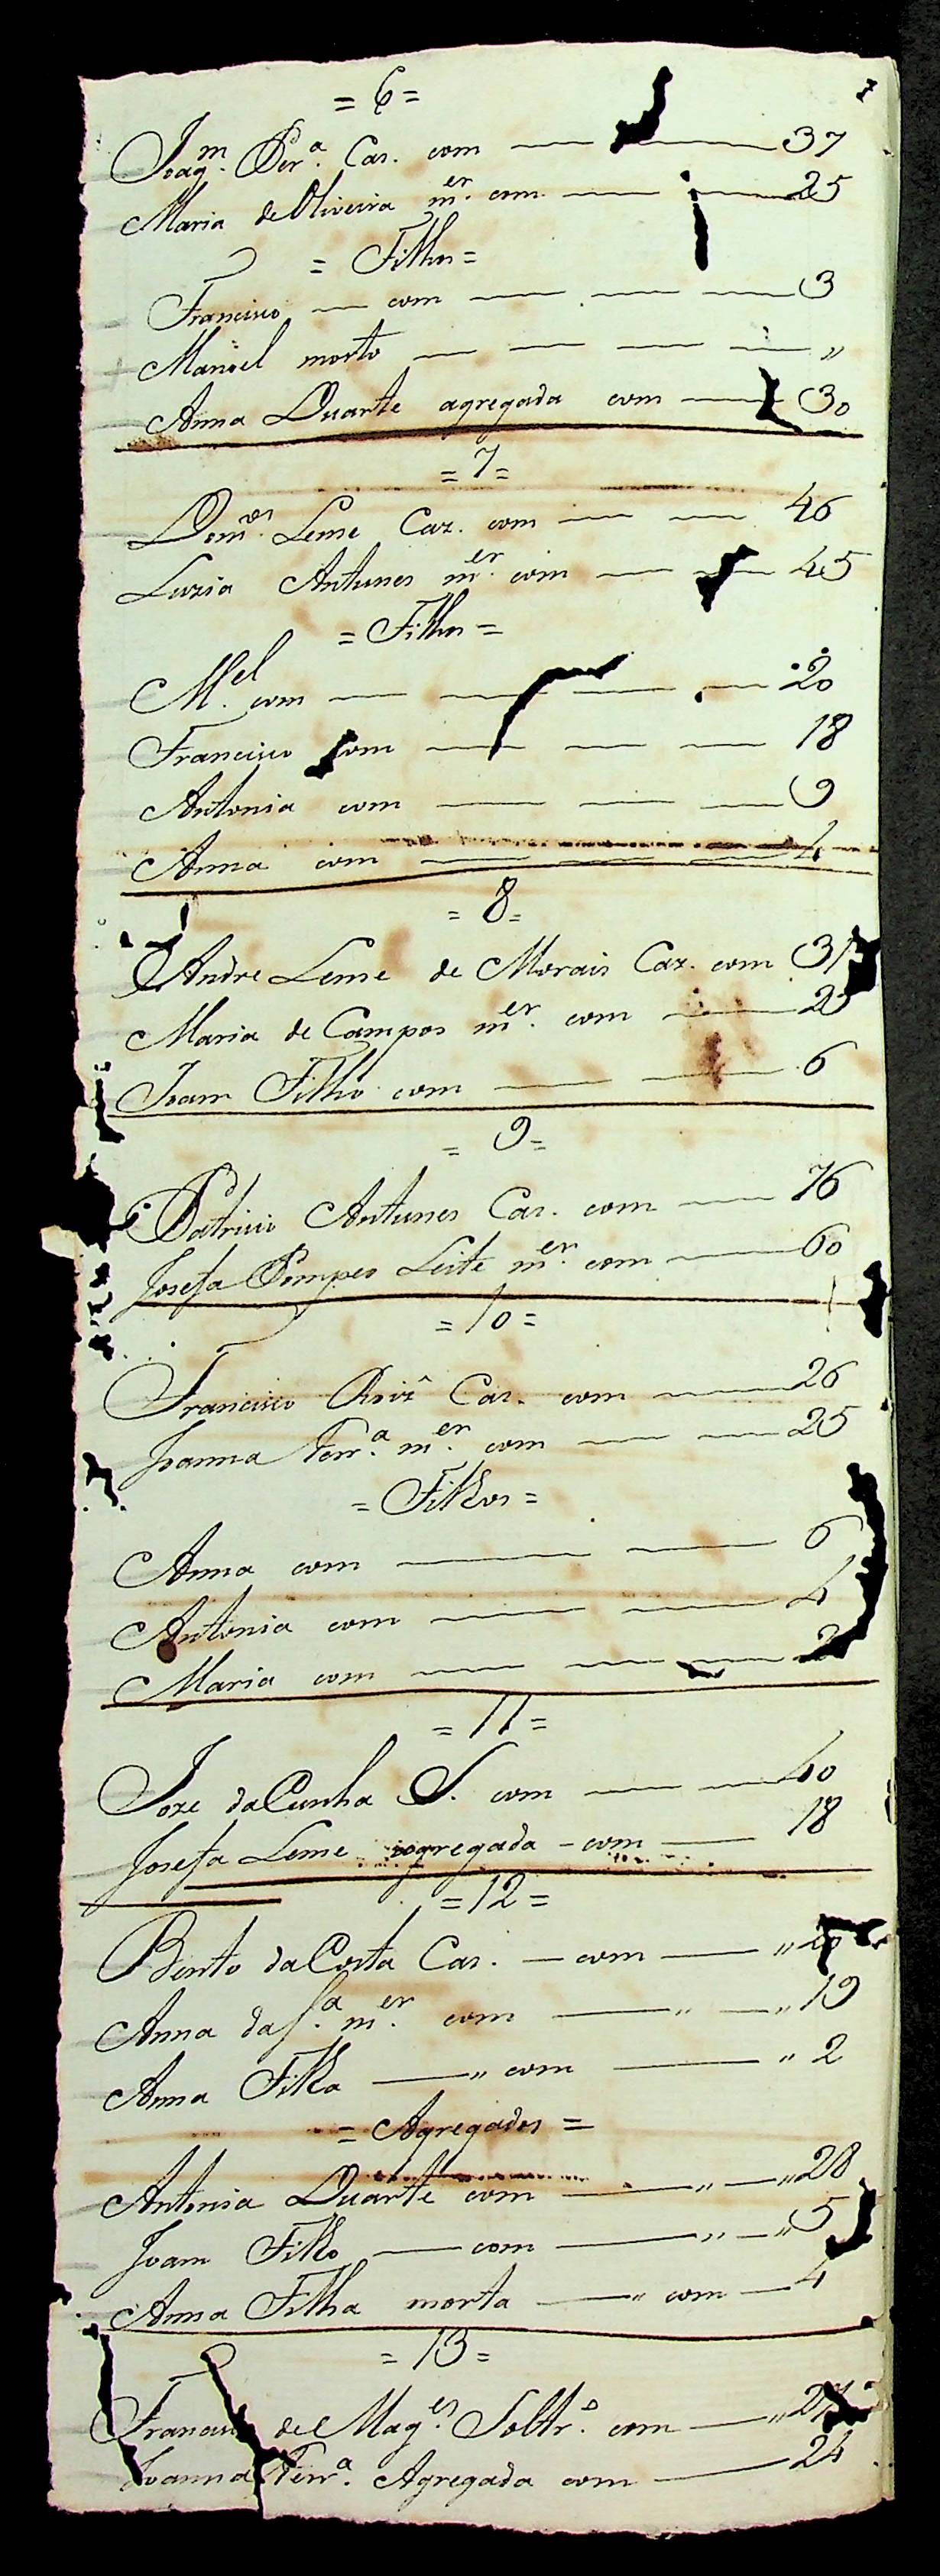 = 6 =
Joaqm. Per.a Caz. com 37
Maria de Oliveira m.er com 25
= Filhos =
Francisco com 3
Manoel morto "
Anna Duarte agregada com 30
= 7 =
Dom.os Leme Caz. com 46
Luzia Antunes m.er com 45
= Filhos =
M.el com 20
Francisco com 18
Antonia com 9
Anna com 4
= 8 =
Andre Leme de Morais Caz. com
Maria de Campos m.er com
Joam Filho com 6
= 9 =
Patricio Antunes Caz. com 76
Josefa Pompeo Leite m.er com 60
= 10 =
Francisco Roiz Caz. com 26
Joanna Ferr.a m.er com 25
= Filhos =
Anna com 6
Antonia com 4
Maria com 2
= 11 =
Joze da Cunha S. com 40
Josefa Leme agregada - com 18
= 12 =
Bento da Costa Caz. - com "
Anna da S.a m.er com " " 19
Anna Filha " com " 2
= Agregados =
Antonia Duarte com " " 28
Joam Filho com " " 5
Anna Filha morta " com 4
= 13 =
Francisco de Mag.es Soltr.o com "
Joanna Ferr.a Agregada com 24